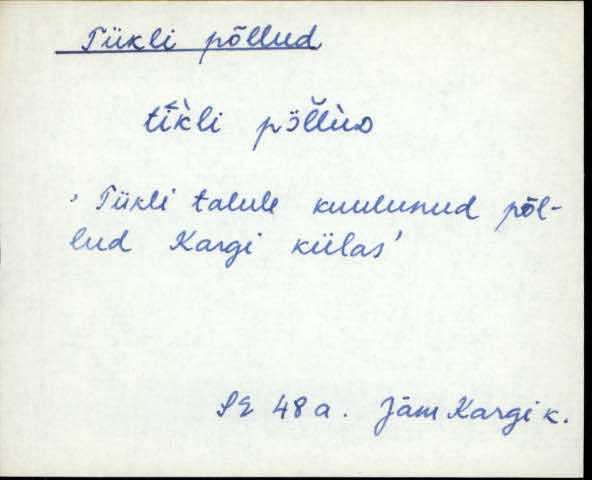 Tiikli põllud
tiκ̀li pö̆llùᴅ
' Tiikli talule kuulunud põl-
lud Kargi külas'
SE 48a. Jäm Kargi k.